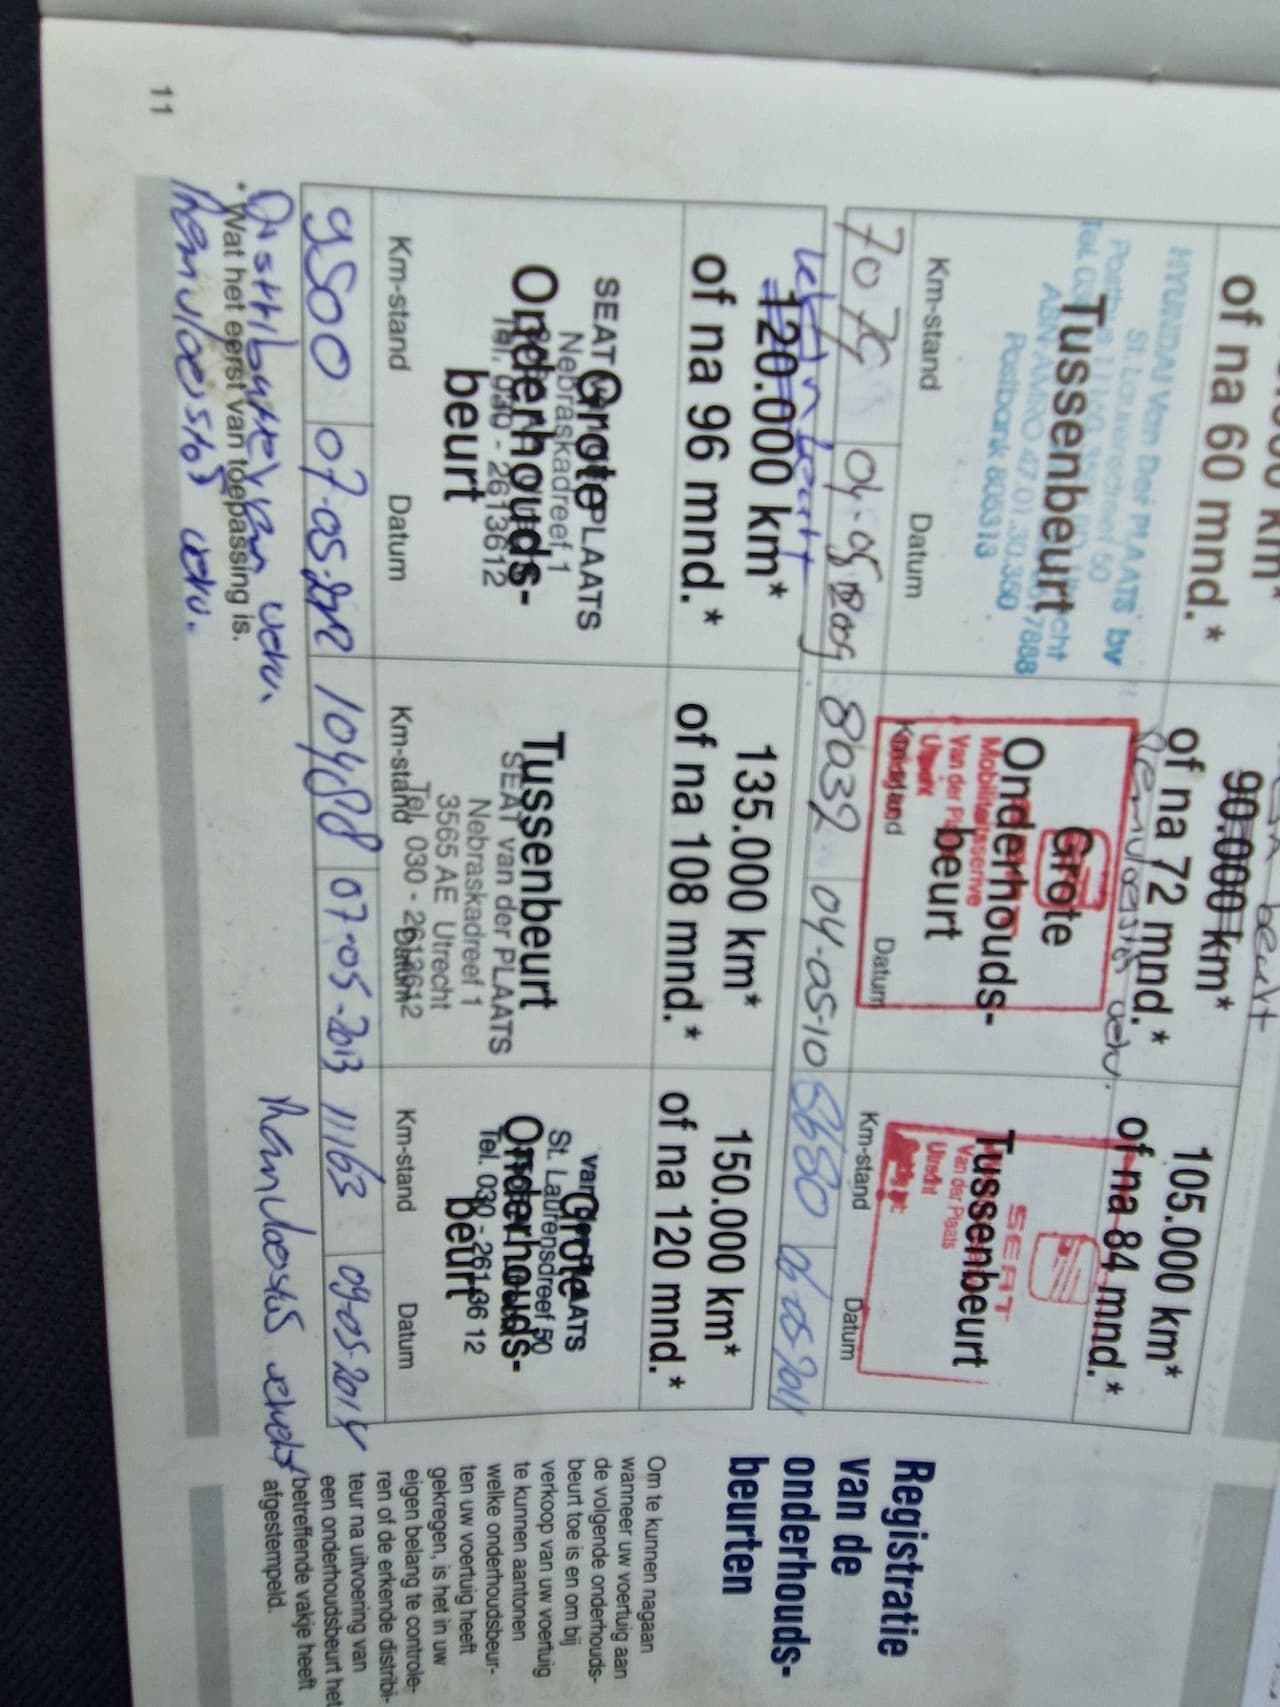 of na 60 mnd.*
HYUNDAI Van Der PLAATS bv
St. Laurensdreef 50
ABN AMRO 47.01.30.350
Postbank 605313
Tussenbeurt
Km-stand
Datum
beurt
90.000 km*
of na 72 mnd.*
Remvloeistof verv.
Grote
Onderhouds-
beurt
Mobiliteitsservice
Van der Plaats
Utrecht
Km-stand
Datum
8032
04-05-10
105.000 km*
of na 84 mnd.*
SEAT
Van der Plaats
Utrecht
Tussenbeurt
Km-stand
Datum
8680
06-05-2011
120.000 km*
of na 96 mnd.*
Grote
Onderhouds-
beurt
SEAT van der PLAATS
Nebraskadreef 1
Tel. 030 - 2613612
Km-stand
Datum
9500
135.000 km*
of na 108 mnd.*
Tussenbeurt
SEAT van der PLAATS
Nebraskadreef 1
3565 AE Utrecht
Tel. 030 - 2613612
Km-stand
Datum
10488
07-05-2013
150.000 km*
of na 120 mnd.*
Grote
Onderhouds-
beurt
St. Laurensdreef 50
Tel. 030 - 261 36 12
Km-stand
Datum
11163
09-05-2014
* Wat het eerst van toepassing is.
Remvloeistof verv.
11
Registratie
van de
onderhouds-
beurten
Om te kunnen nagaan
wanneer uw voertuig aan
de volgende onderhouds-
beurt toe is en om bij
verkoop van uw voertuig
te kunnen aantonen
welke onderhoudsbeur-
ten uw voertuig heeft
gekregen, is het in uw
eigen belang te controle-
ren of de erkende distribu-
teur na uitvoering van
een onderhoudsbeurt het
betreffende vakje heeft
afgestempeld.